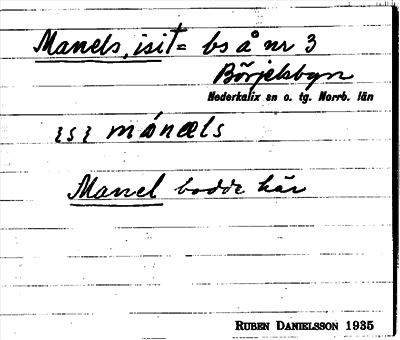 Manels, isit = bs å nr 3
Börjelsbyn
Nederkalix sn o. tg. Norrb. län
{s} mánæls
Manel bodde här
RUBEN DANIELSSON 1935